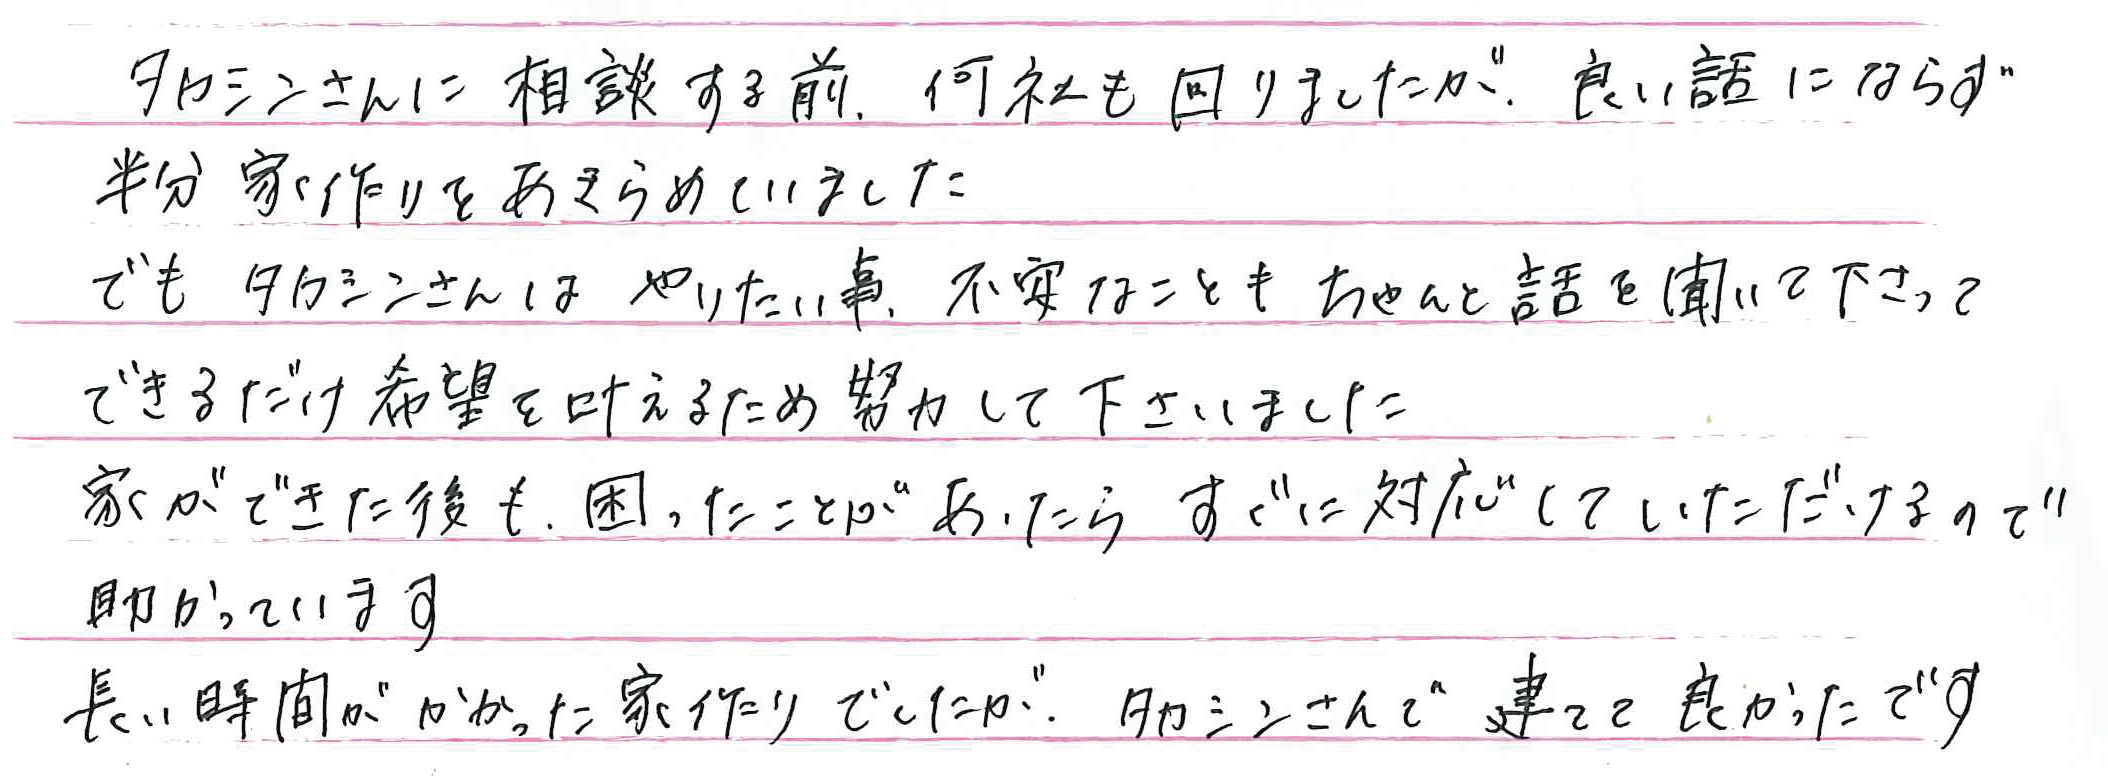 タカシンさんに相談する前、何社も回りましたが、良い話にならず
半分家作りをあきらめていました
でもタカシンさんはやりたい事、不安なこともちゃんと話を聞いて下さって
できるだけ希望を叶えるため努力して下さいました
家ができた後も、困ったことがあったらすぐに対応していただけるので
助かっています
長い時間がかかった家作りでしたが、タカシンさんで建てて良かったです